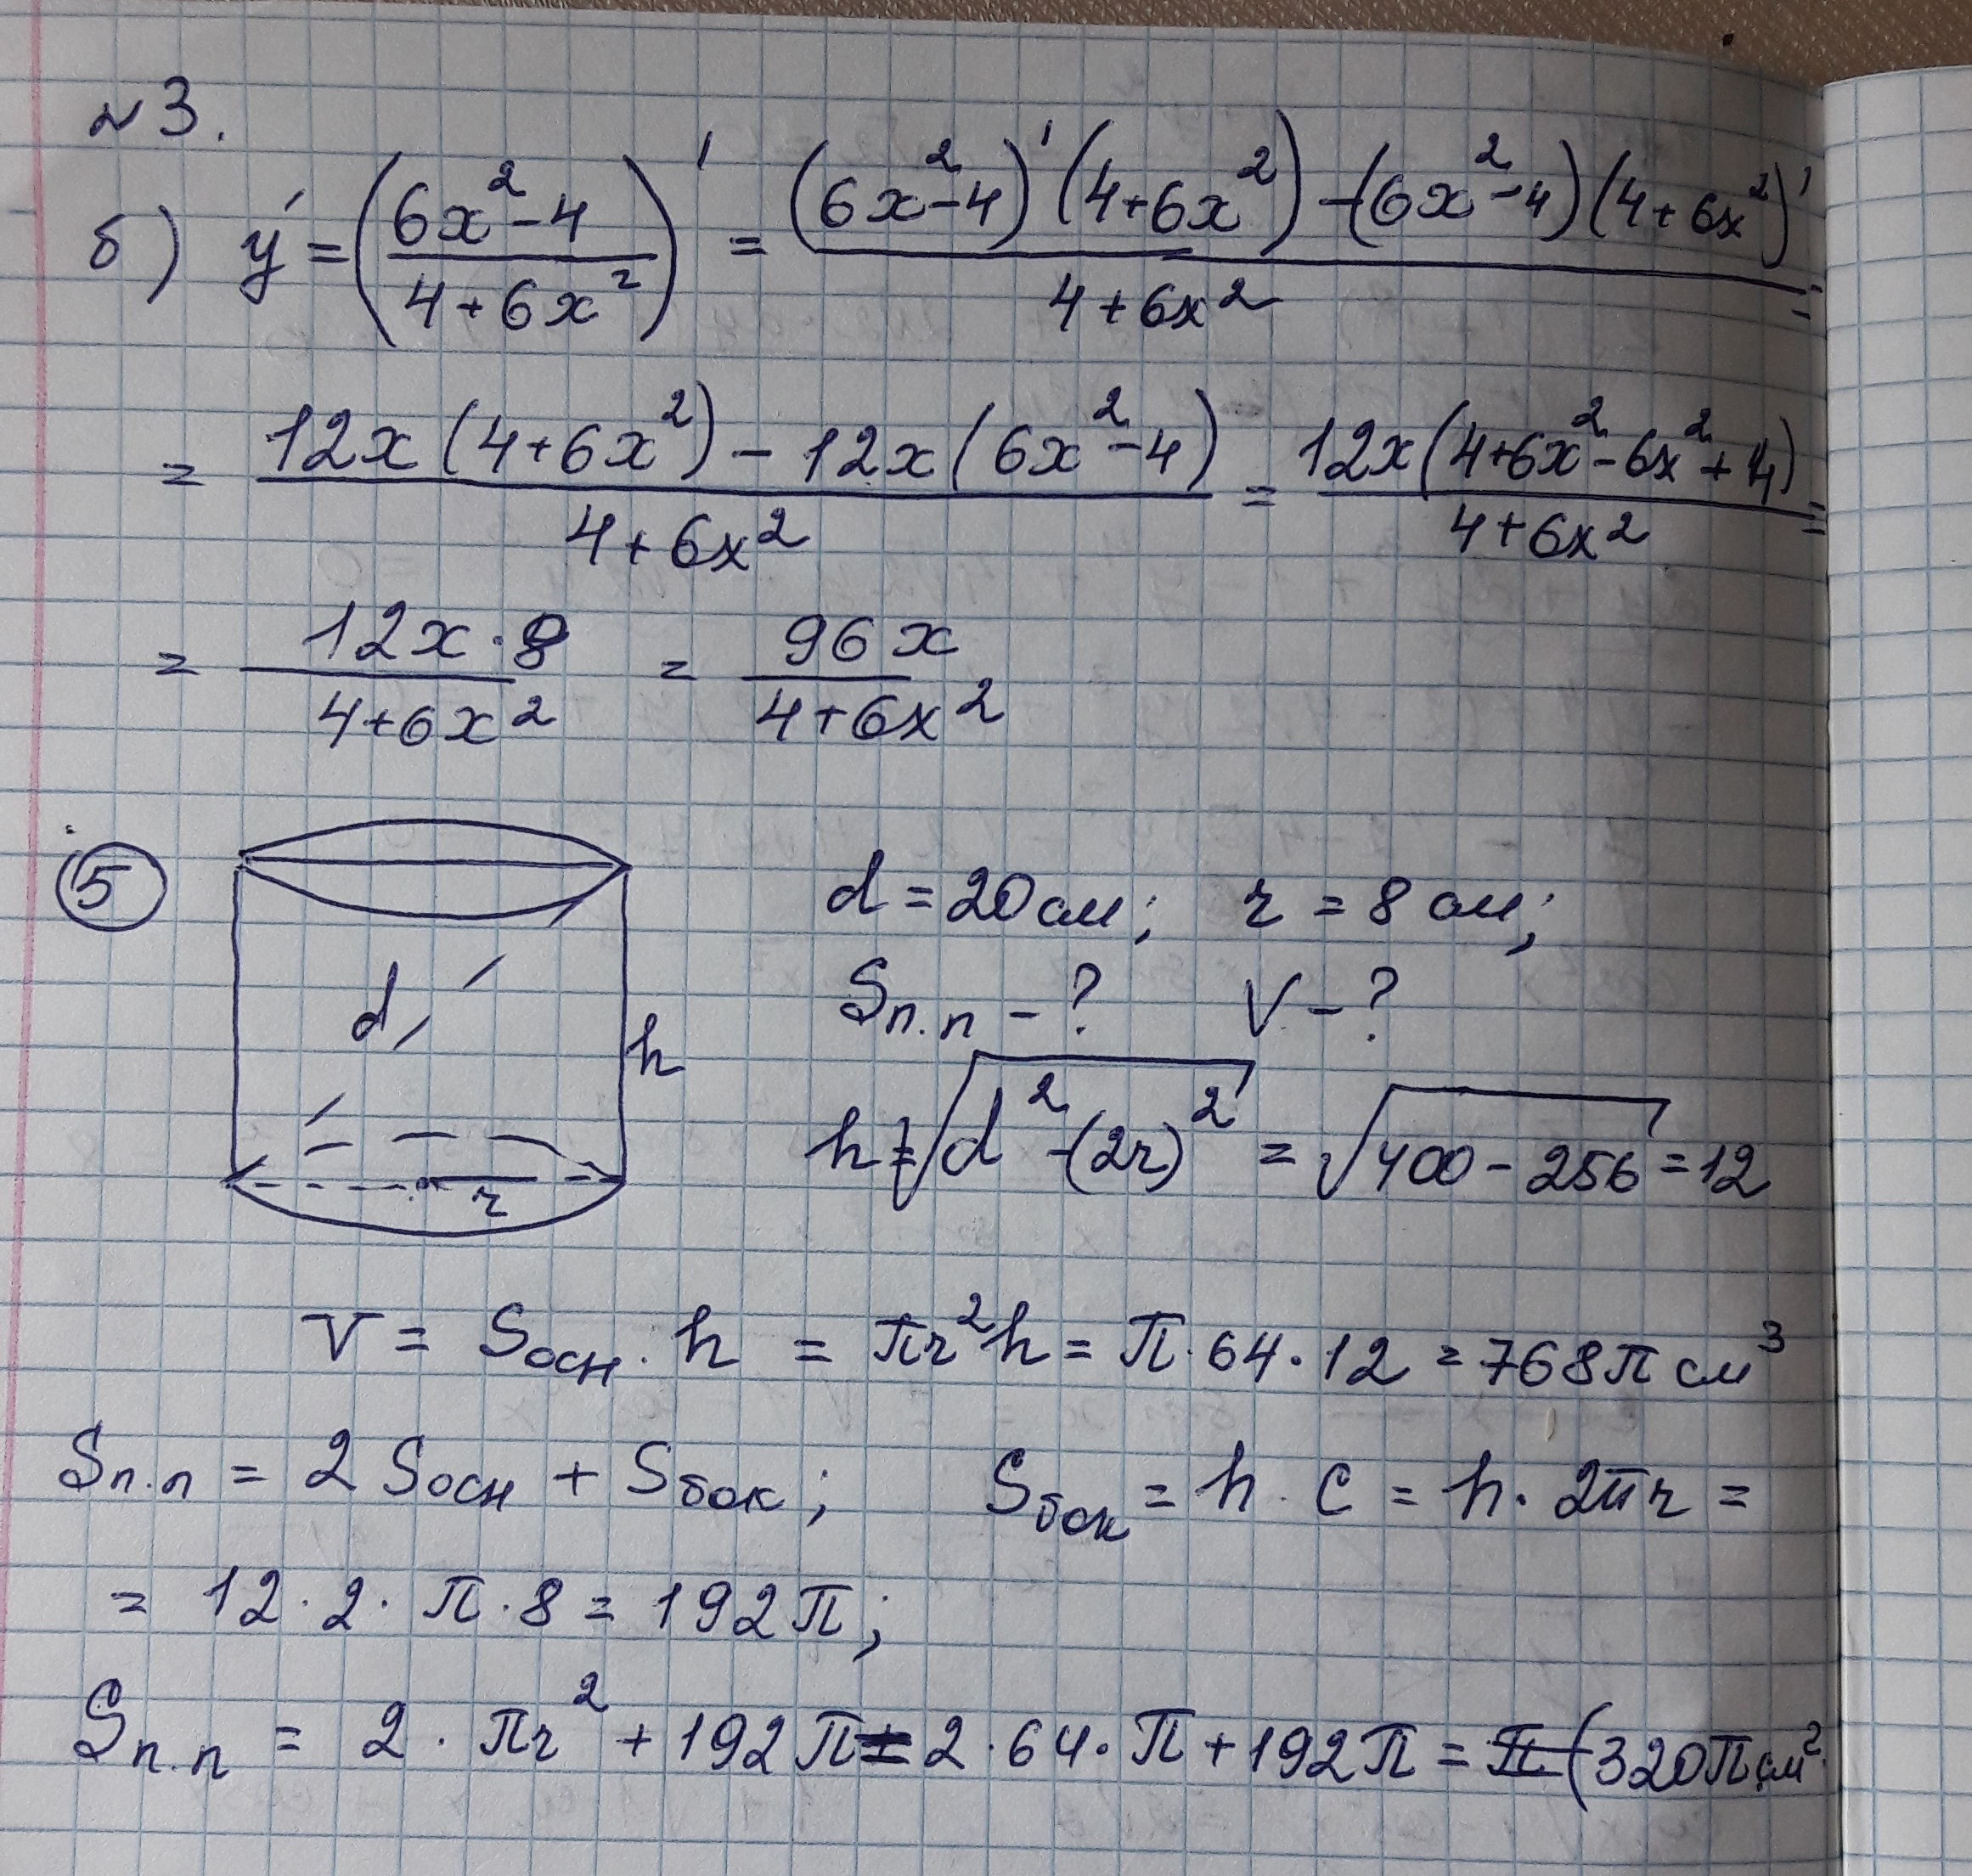 №3.
б) y' = ((6x²-4)/(4+6x²))' = ((6x²-4)'(4+6x²) - (6x²-4)(4+6x²)')/(4+6x²) =
= (12x(4+6x²) - 12x(6x²-4))/(4+6x²) = (12x(4+6x²-6x²+4))/(4+6x²) =
= (12x·8)/(4+6x²) = 96x/(4+6x²)
5
d = 20 см; r = 8 см;
Sп.п - ? V - ?
d
h
r
h = √(d²-(2r)²) = √(400-256) = 12
V = Sосн · h = πr²h = π·64·12 = 768π см³
Sп.п = 2 Sосн + Sбок; Sбок = h · C = h · 2πr =
= 12·2·π·8 = 192π;
Sп.п = 2·πr² + 192π = 2·64·π + 192π = 320π см²